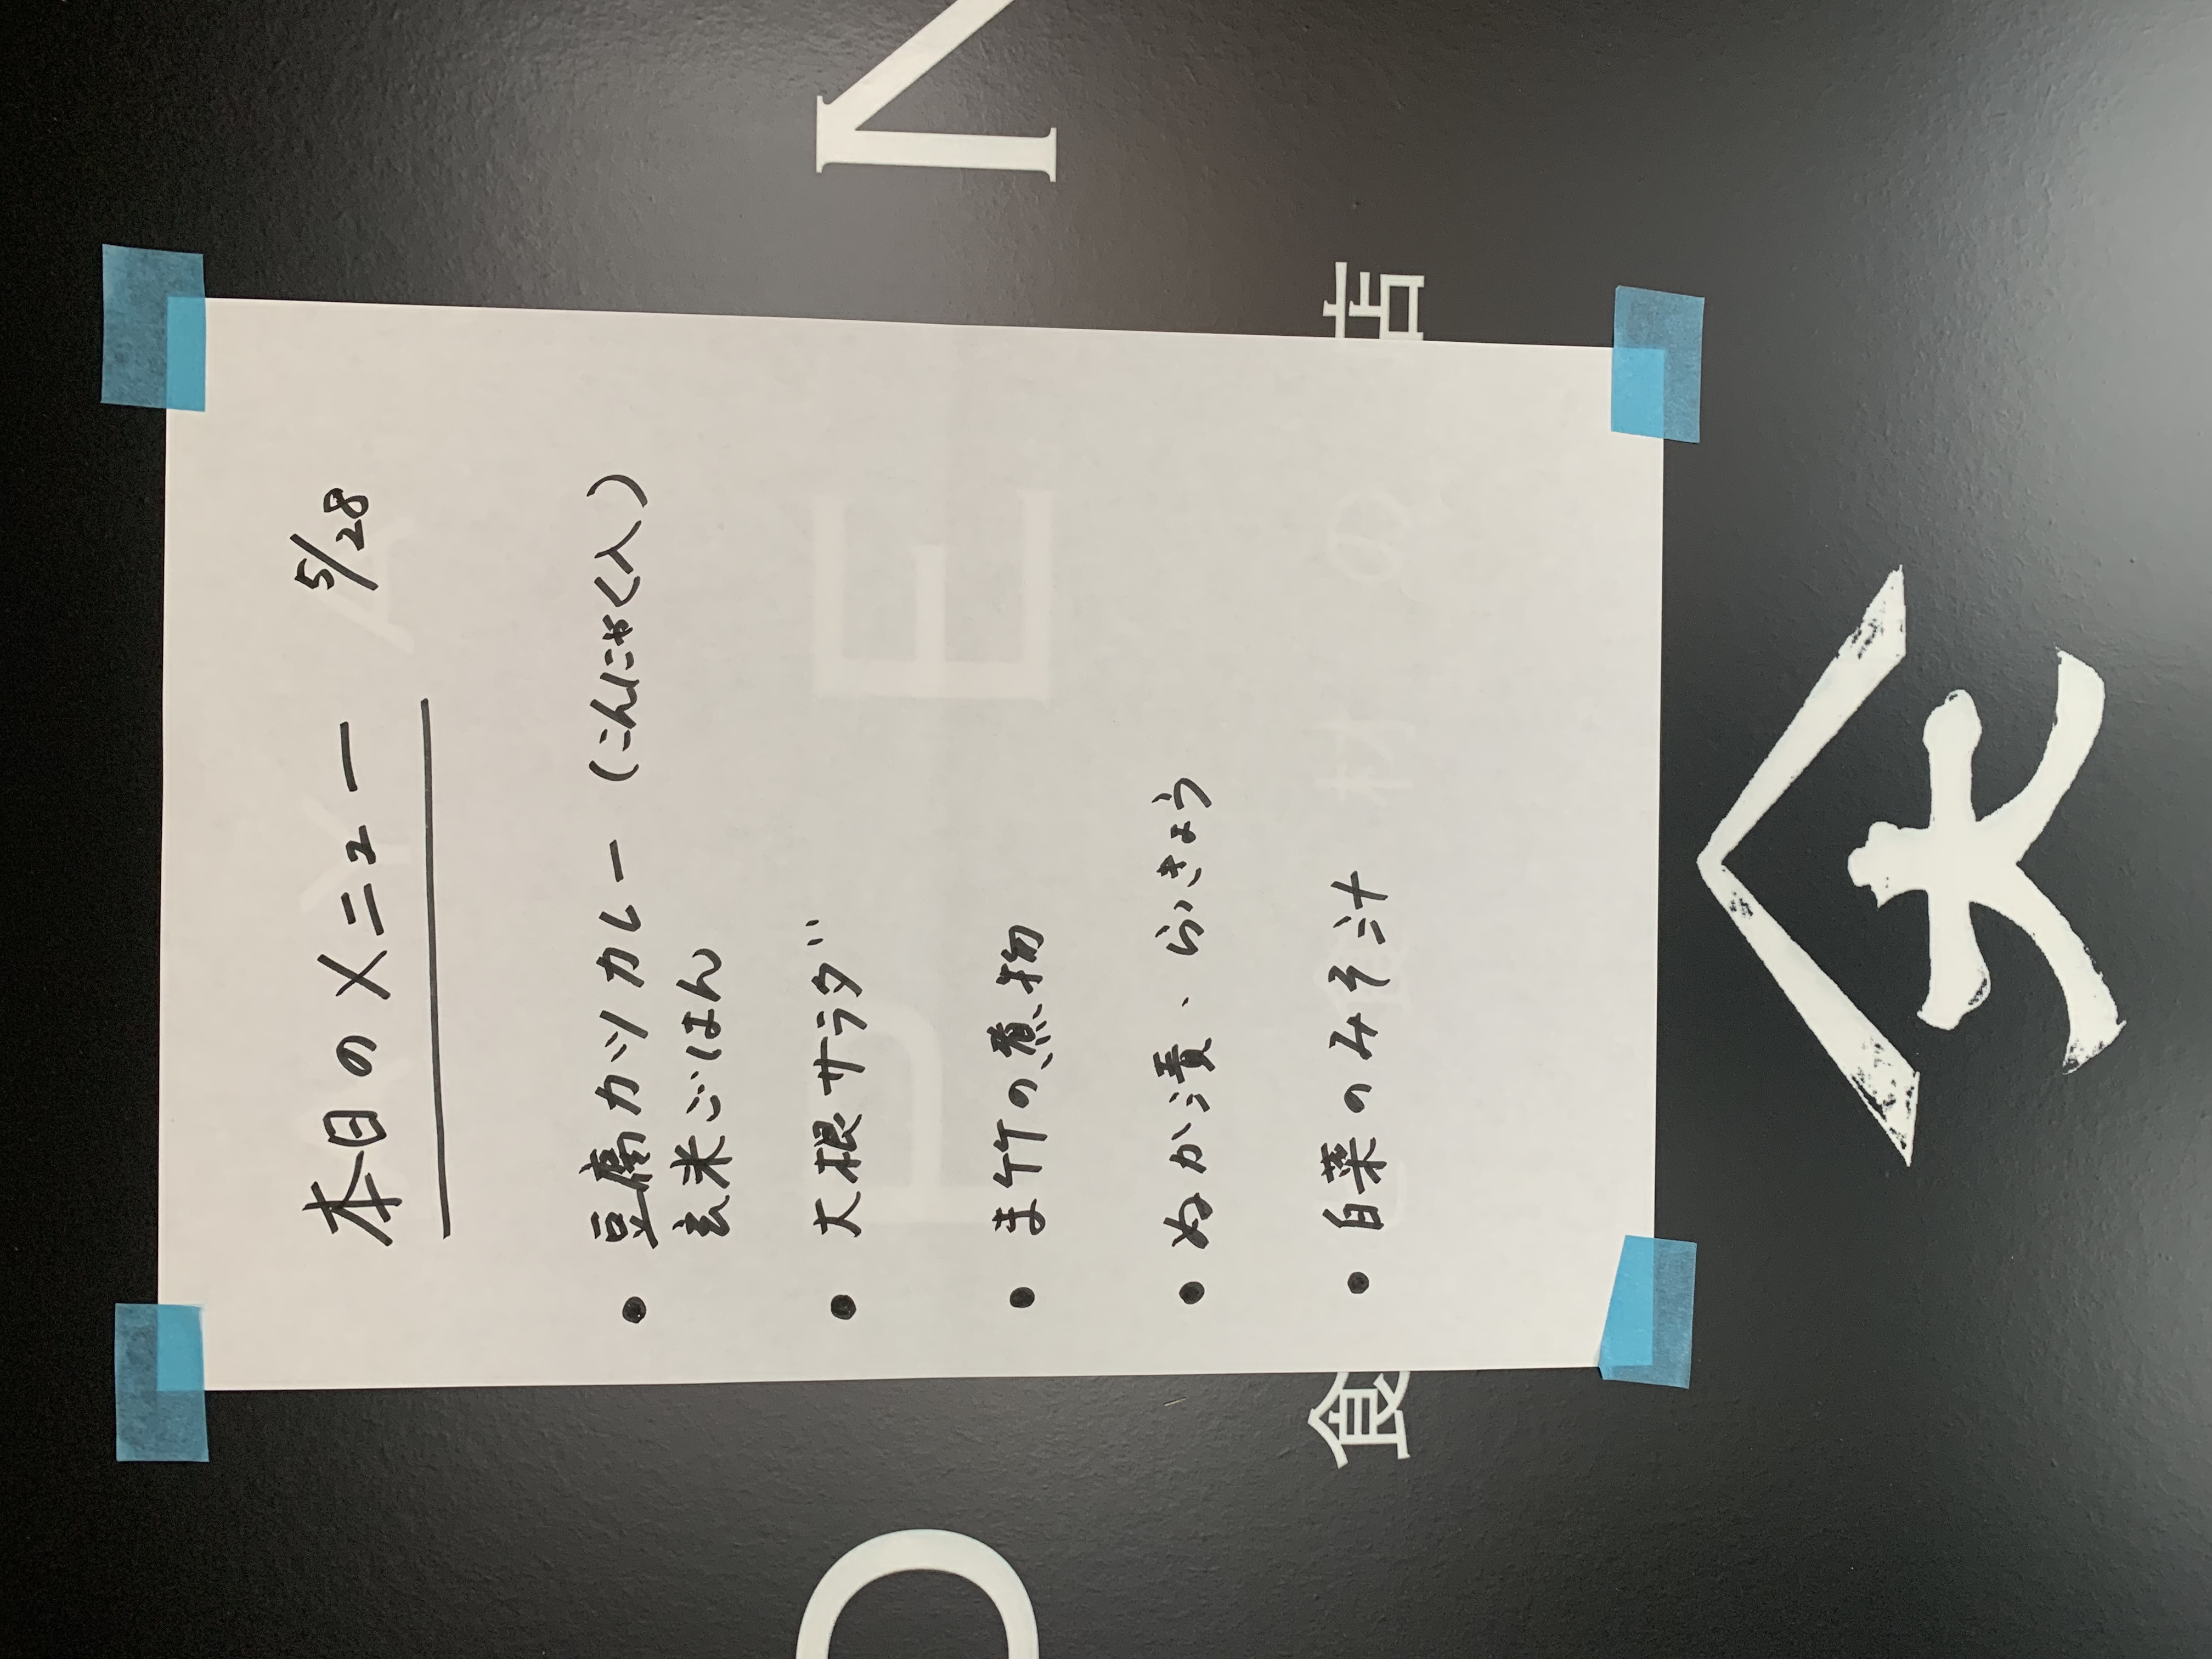 本日のメニュー 5/28
• 豆腐カツカレー (こんにゃく入)
玄米ごはん
• 大根サラダ
• ま竹の煮物
• ぬか漬、らっきょう
• 白菜のみそ汁
OPEN
食材の店